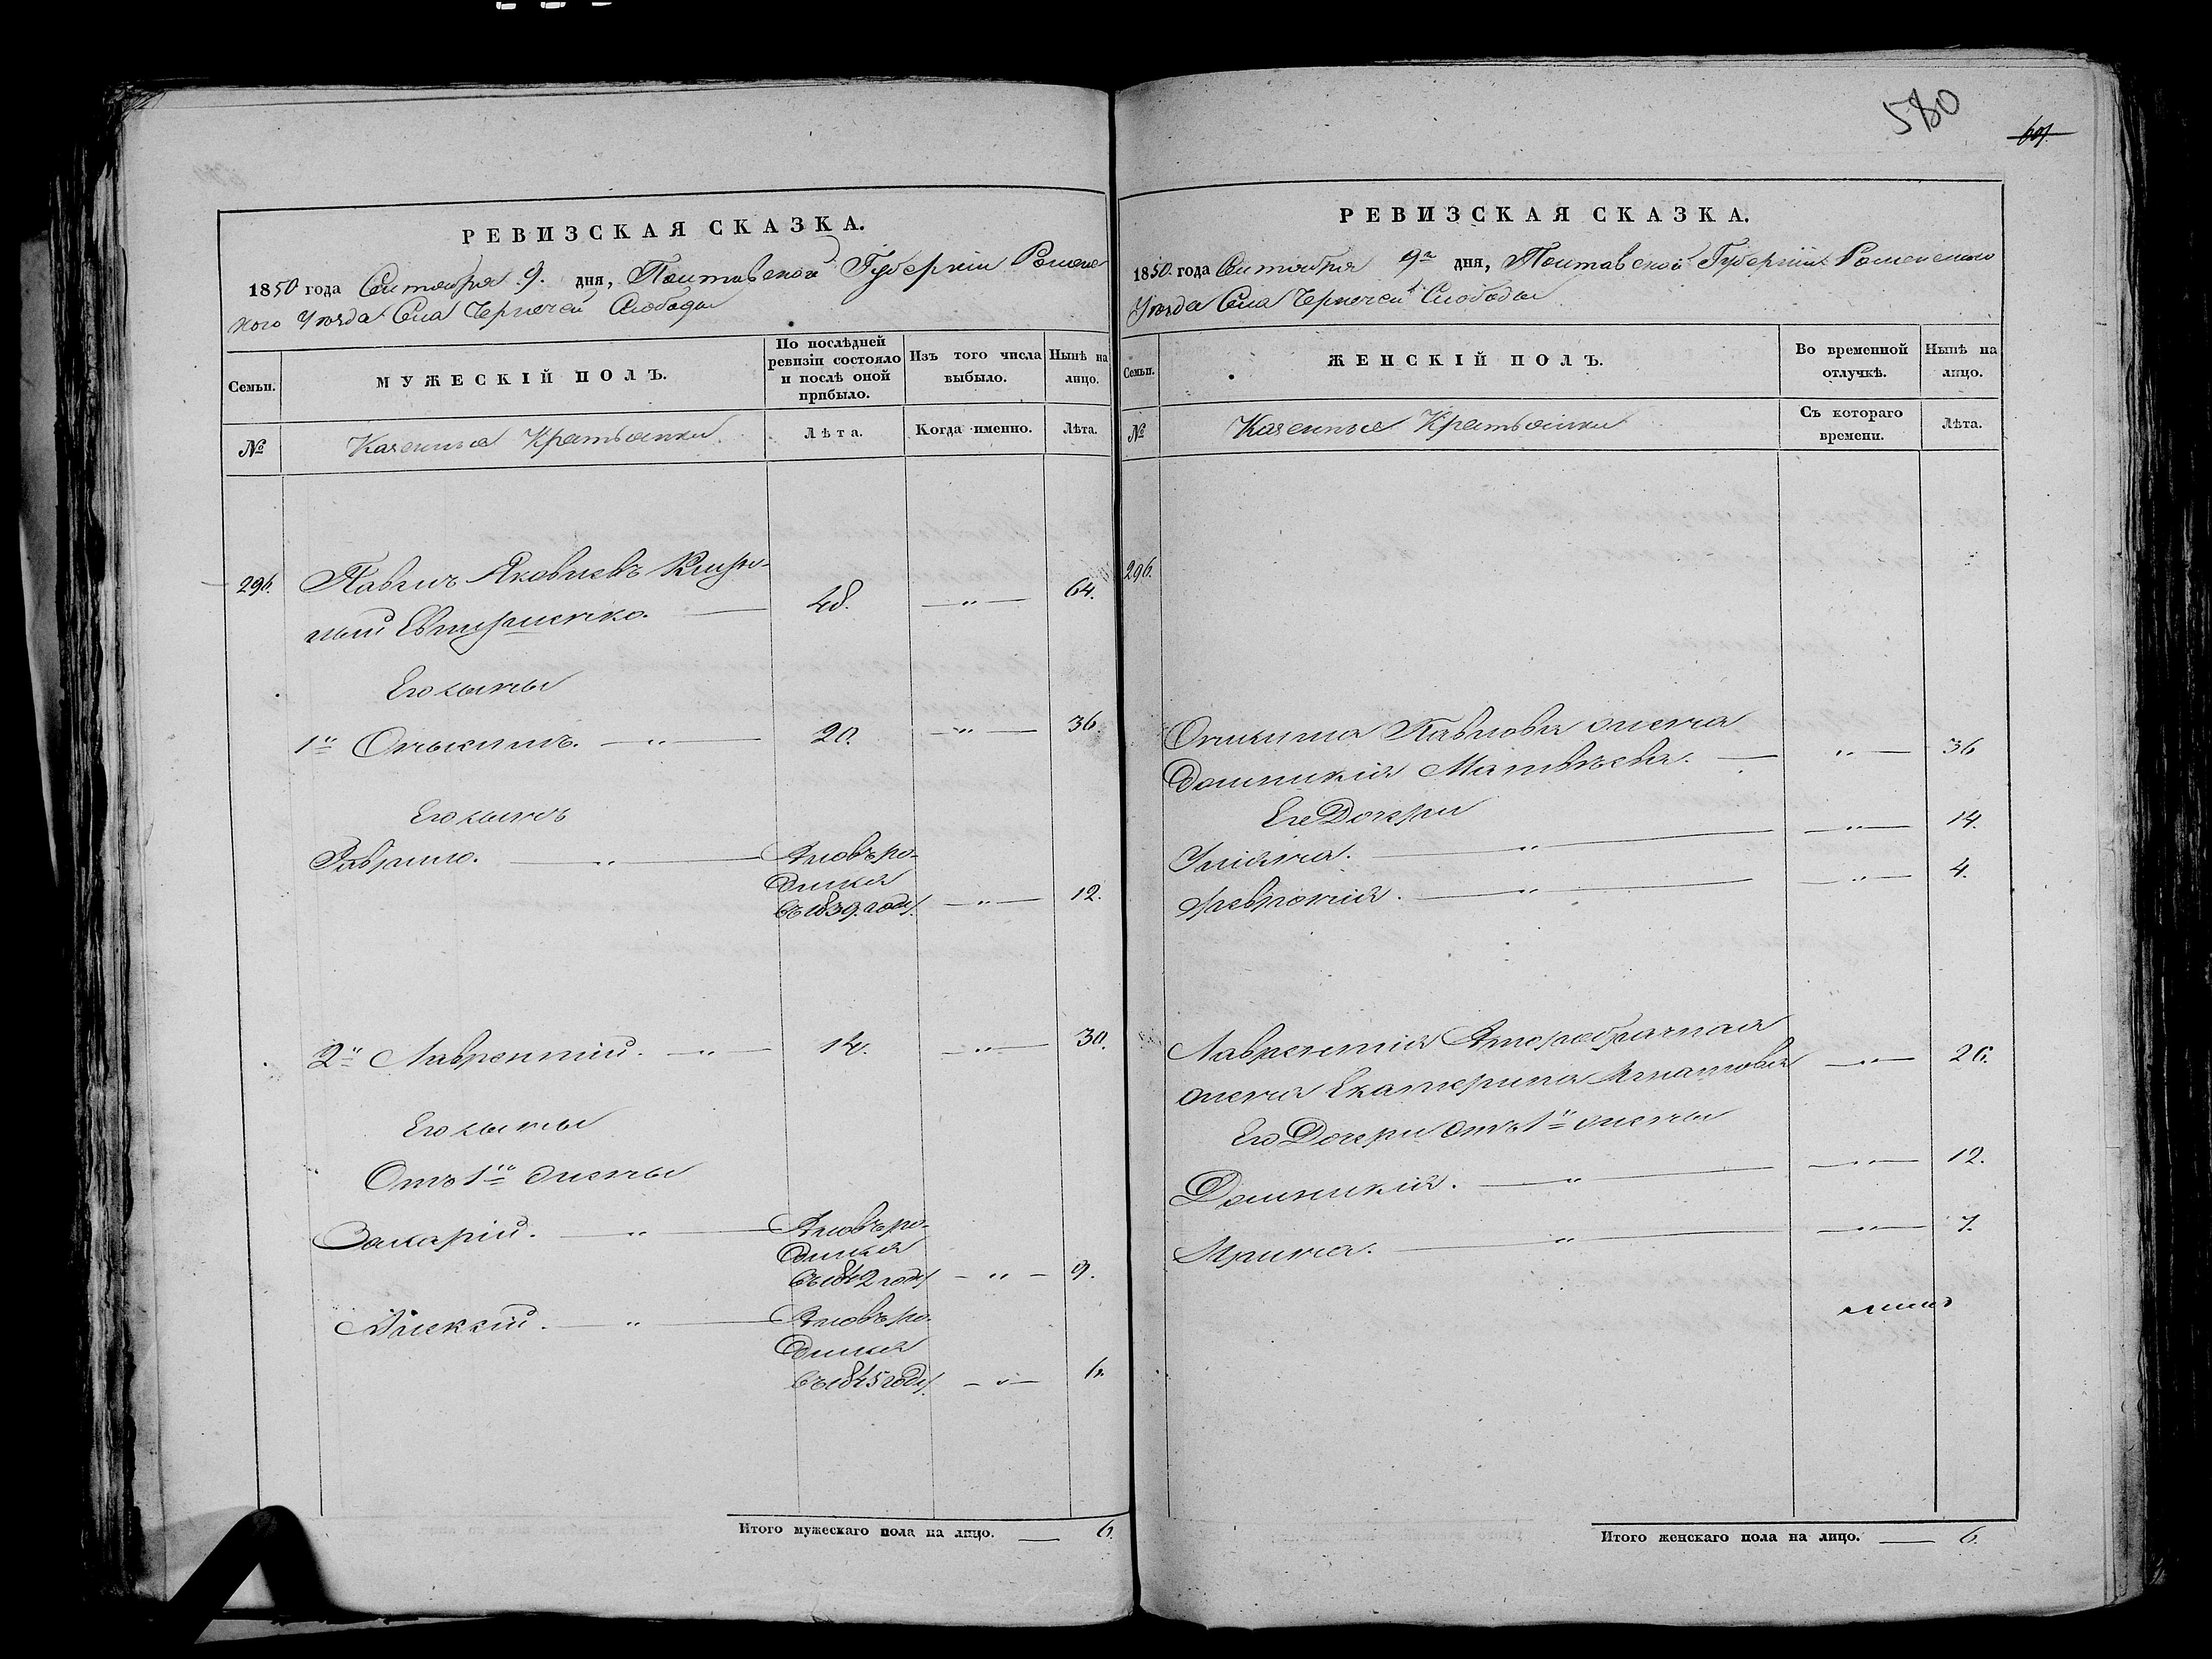 580
601.
РЕВИЗСКАЯ СКАЗКА.
1850 года Сентября 9. дня, Полтавской Губернии Роменс
кого Уезда Села Чернечей Слободы
Семьи.
МУЖЕСКІЙ ПОЛЪ.
По послѣдней ревизіи состояло и послѣ оной прибыло.
Изъ того числа выбыло.
Нынѣ на лицо.
№
Казенные Крестьянки
Лѣта.
Когда именно.
Лѣта.
296. Павелъ Яковлевъ
48. —"— 64.
Его сыны
1й — " — 20. —"— 36.
Его сынъ
Гаврило. — " — Вновь ро-
дился
въ 1839. году. —"— 12.
2й Лаврентий. — " — 14. —"— 30.
Его сыны
Отъ 1й жены
Захарій. — " — Вновь ро-
дился
въ 1842 году — " — 9.
Алексѣй. — " — Вновь ро-
дился
въ 1845 году. — " — 6.
Итого мужескаго пола на лицо. — 6.
РЕВИЗСКАЯ СКАЗКА.
1850. года Сентября 9го дня, Полтавской Губернии Роменского
Уезда Села Чернечей Слободы
Семьи.
ЖЕНСКІЙ ПОЛЪ.
Во временной отлучкѣ.
Нынѣ на лицо.
№
Казенные Крестьянки
Съ котораго времени.
Лѣта.
296.
Павлова жена
Домникія Матвѣева. — —"— 36
Его Дочери
Уліяна. — " — —"— 14.
Февронія. — " — —"— 4.
Лаврентія Второбрачная
жена Екатерина Игнатова —"— 26.
Его Дочери отъ 1й жены
Домникія. — " — —"— 12.
Ирина. — " — —"— 7.
Итого женскаго пола на лицо. — 6.